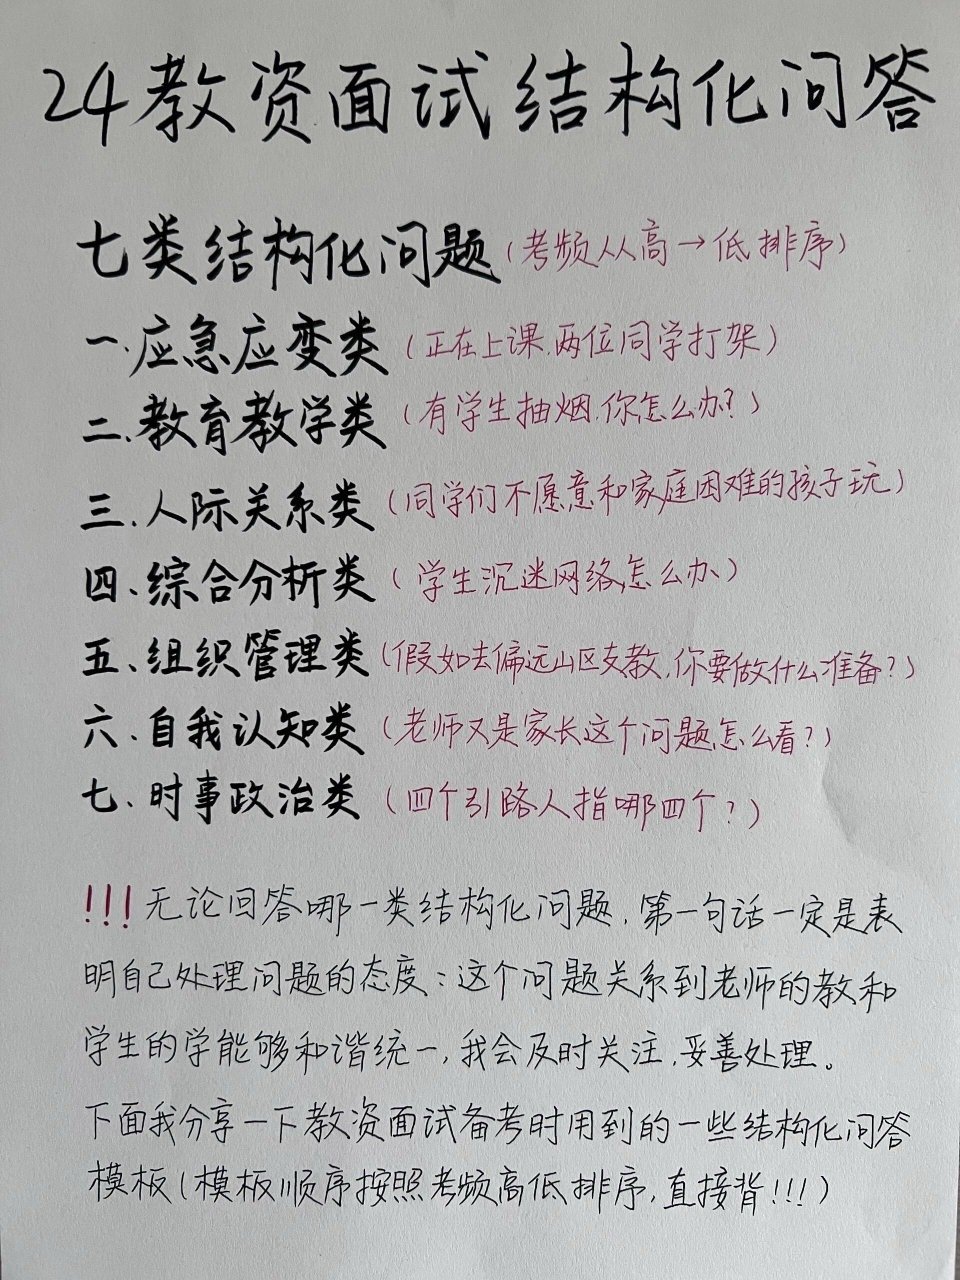 24教资面试结构化问答
七类结构化问题(考频从高→低排序)
一.应急应变类(正在上课,两位同学打架)
二.教育教学类(有学生抽烟,你怎么办?)
三.人际关系类(同学们不愿意和家庭困难的孩子玩)
四、综合分析类(学生沉迷网络怎么办)
五、组织管理类(假如去偏远山区支教,你要做什么准备?)
六、自我认知类(老师又是家长这个问题怎么看?)
七、时事政治类(四个引路人指哪四个?)
!!!无论回答哪一类结构化问题,第一句话一定是表
明自己处理问题的态度:这个问题关系到老师的教和
学生的学能够和谐统一,我会及时关注,妥善处理。
下面我分享一下教资面试备考时用到的一些结构化问答
模板(模板顺序按照考频高低排序,直接背!!!)